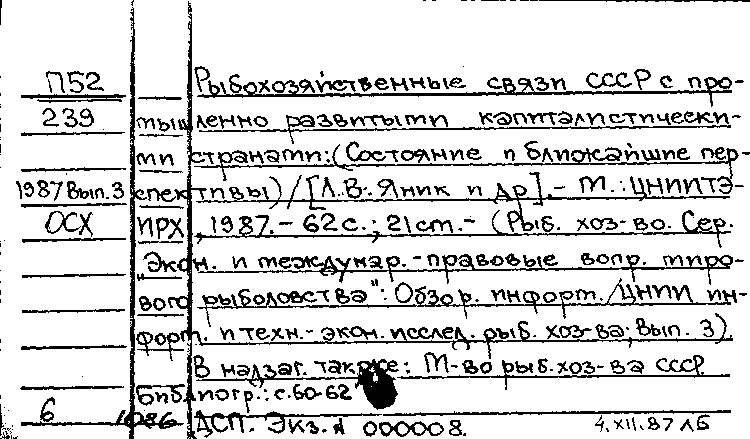 П52 Рыбохозяйственные связи СССР с про-
239 мышленно развитыми капиталистически-
ми странами: (Состояние и ближайшие пер-
1987 Вып. 3 спективы) / [Л.В. Яник и др]. - М.: ЦНИИТЭ-
ОСХ ИРХ, 1987. - 62 с.; 21 см. - (Рыб. хоз-во. Сер.
"Экон. и междунар.-правовые вопр. миро-
вого рыболовства": Обзор. информ. / ЦНИИ ин-
форм. и техн.-экон. исслед. рыб. хоз-ва; Вып. 3).
В надзаг. также: М-во рыб. хоз-ва СССР.
Библиогр.: с. 60-62
6 1086 ДСП. Экз. № 000008. 4.XII.87 ЛБ